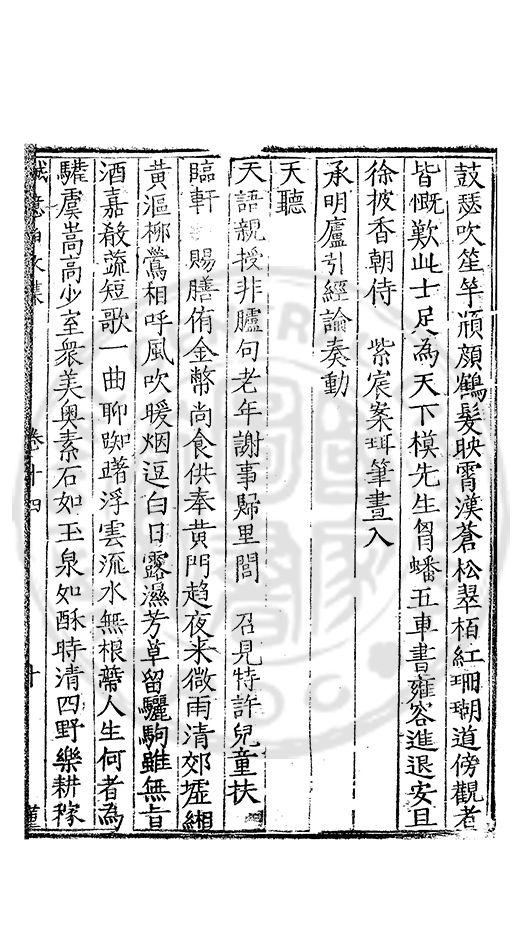 鼓瑟吹笙竽頳顔鶴髮映霄漢蒼松翠栢紅珊瑚道傍觀者
皆慨歎此士足為天下模先生胷蟠五車書雍容進退安且
徐披香朝侍　紫宸案珥筆晝入
承明廬引經論奏動
天聽
天語親授非臚句老年謝事歸里閭　召見特許兒童扶
臨軒　賜膳侑金幣尚食供奉黄門趨夜来微雨清郊墟緗
黄漚柳鶯相呼風吹暖烟逗白日露濕芳草留驪駒雖無旨
酒嘉殽蔬短歌一曲聊踟躇浮雲流水無根蔕人生何者為
驩虞嵩高少室衆美奥素石如玉泉如酥時清四野樂耕稼
卷十四
十